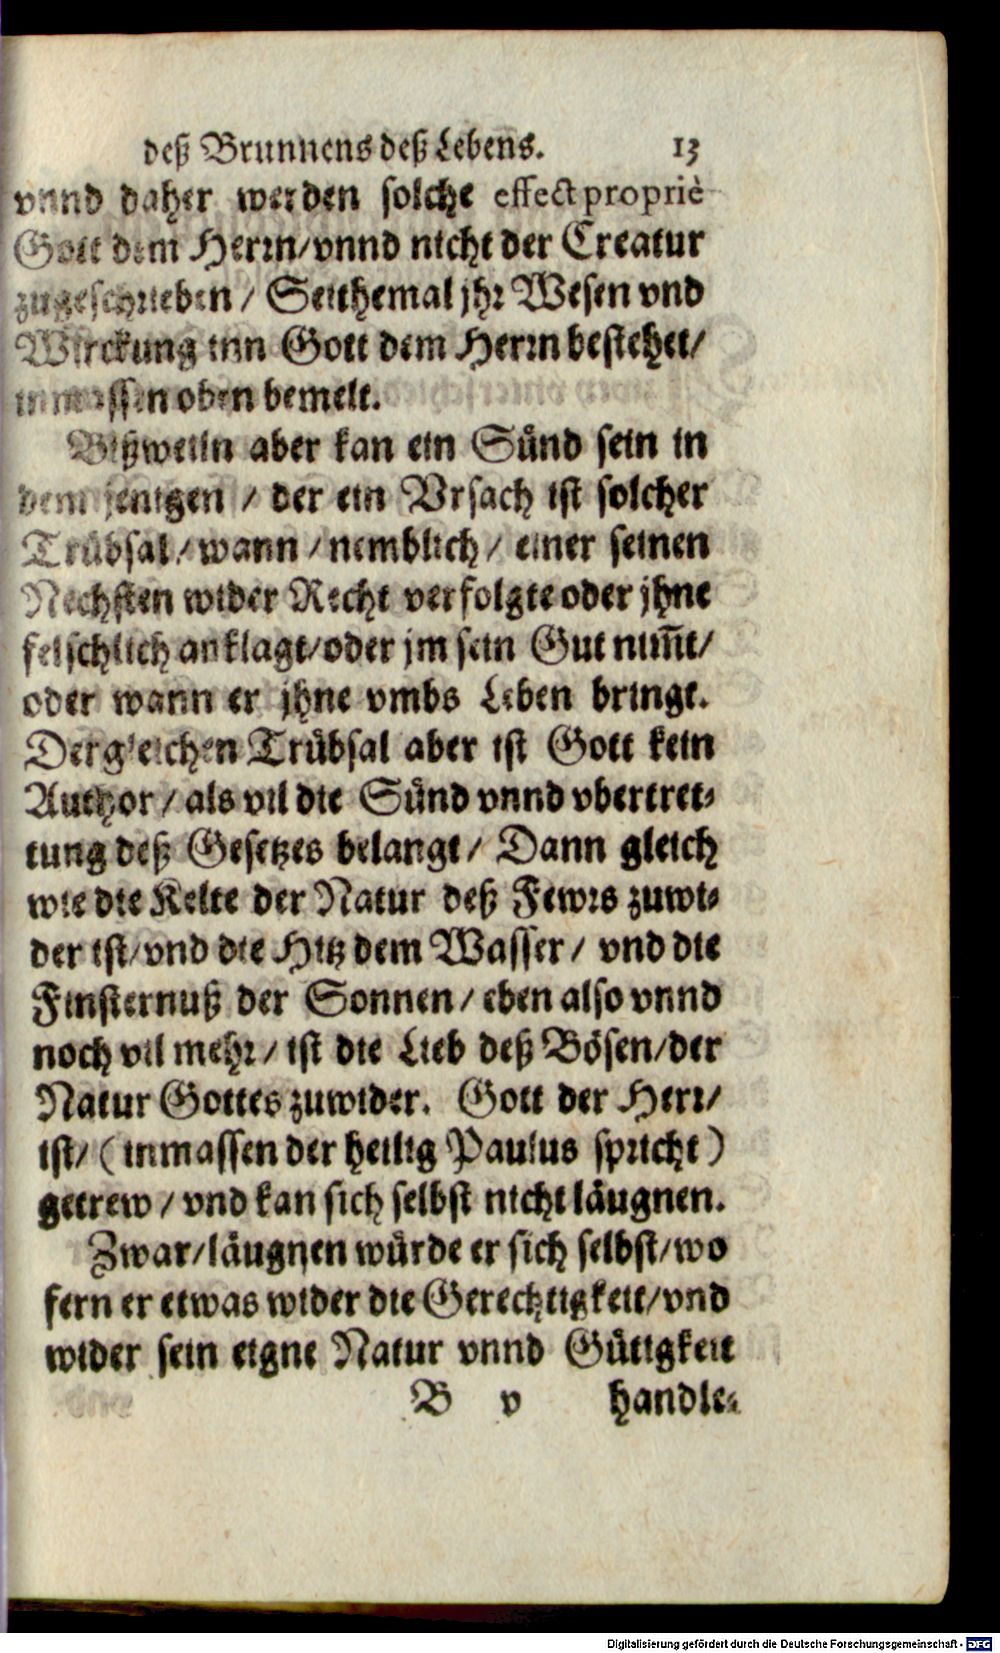 deß Brunnens deß Lebens. 13
vnnd daher werden solche effect propriè
Gott dem Herrn/vnnd nicht der Creatur
zugeschrieben / Seithemal jhr Wesen vnd
Wirckung inn Gott dem Herrn bestehet/
inmassen oben bemelt.
Bißweiln aber kan ein Sünd sein in
dem jenigen / der ein Vrsach ist solcher
Trübsal / wann / nemblich / einer seinen
Nechsten wider Recht verfolgte oder jhne
felschlich anklagt/oder jm sein Gut nim̃t/
oder wann er jhne vmbs Leben bringt.
Dergleichen Trübsal aber ist Gott kein
Author / als vil die Sünd vnnd vbertret-
tung deß Gesetzes belangt / Dann gleich
wie die Kelte der Natur deß Fewrs zuwi-
der ist/vnd die Hitz dem Wasser / vnd die
Finsternuß der Sonnen / eben also vnnd
noch vil mehr / ist die Lieb deß Bösen/der
Natur Gottes zuwider. Gott der Herr/
ist/ (inmassen der heilig Paulus spricht)
getrew / vnd kan sich selbst nicht läugnen.
Zwar/läugnen würde er sich selbst/wo
fern er etwas wider die Gerechtigkeit/vnd
wider sein eigne Natur vnnd Gütigkeit
B v handle-
Digitalisierung gefördert durch die Deutsche Forschungsgemeinschaft - DFG